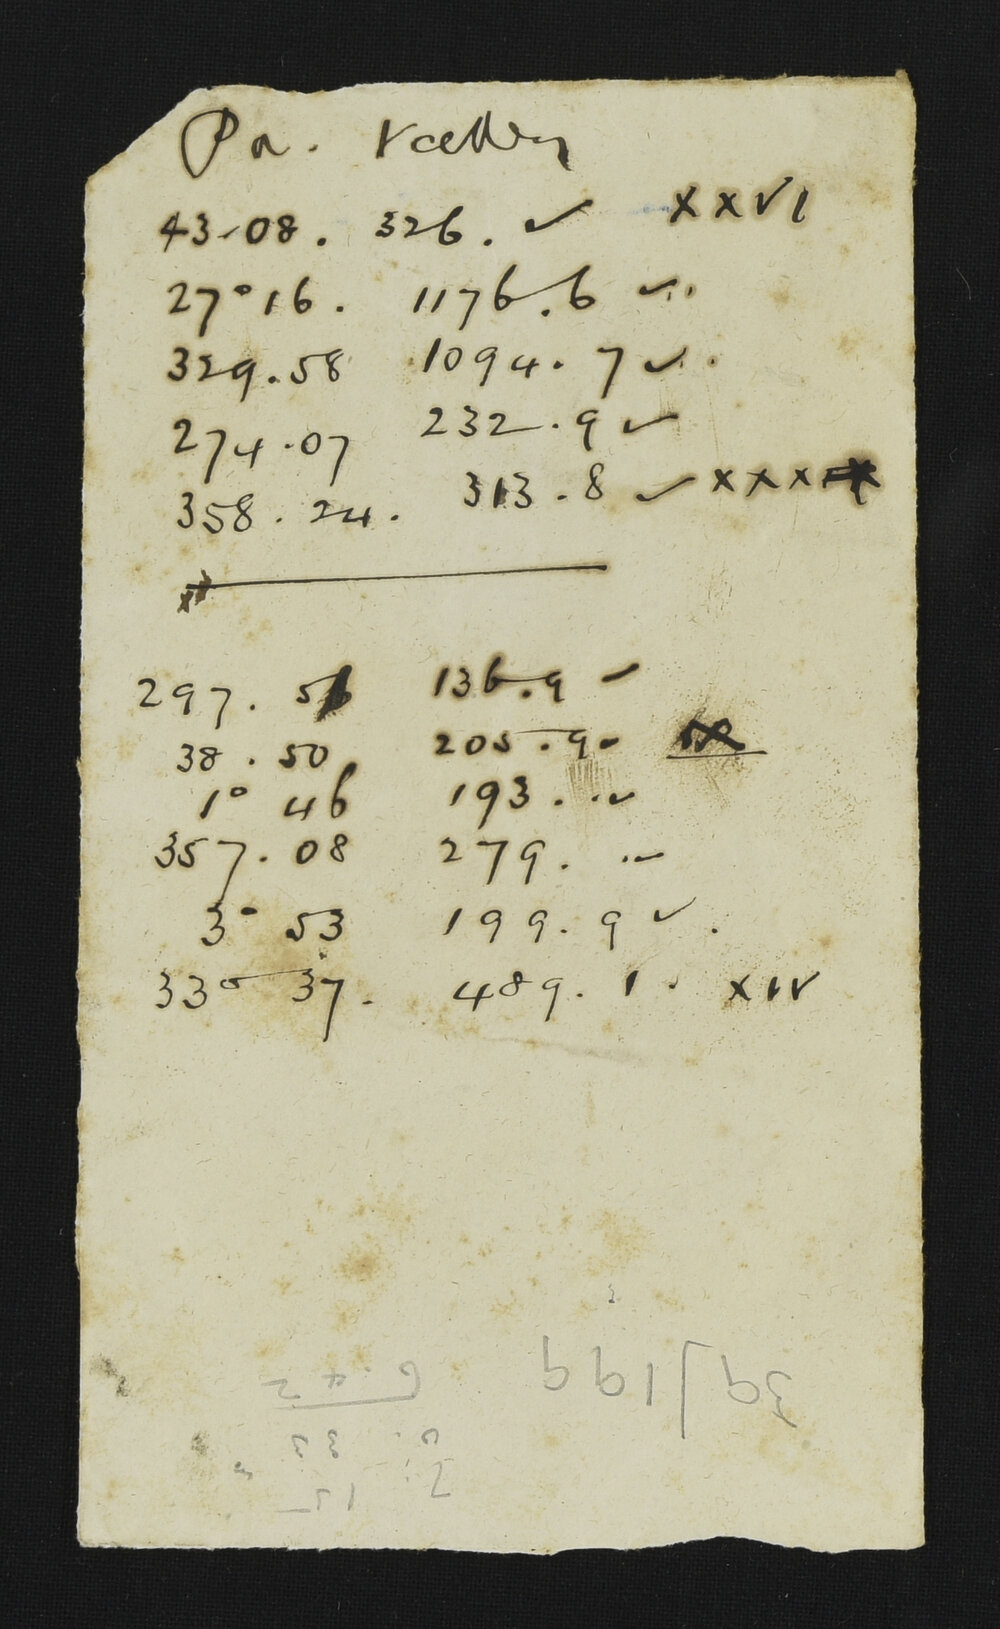 Pa. Valley
43-08. 326. ✓ XXVI
27° 16. 1176.6 ✓
329.58 1094.7 ✓.
274.07 232.9 ✓
358.24. 313.8 ✓ XXX
297. 56 136.9 ✓
38.50 205.9
1° 46 193. ✓
357.08 279.
3° 53 199.9 ✓.
33° 37. 489.1. XIV
39/199
6.42
7: 15